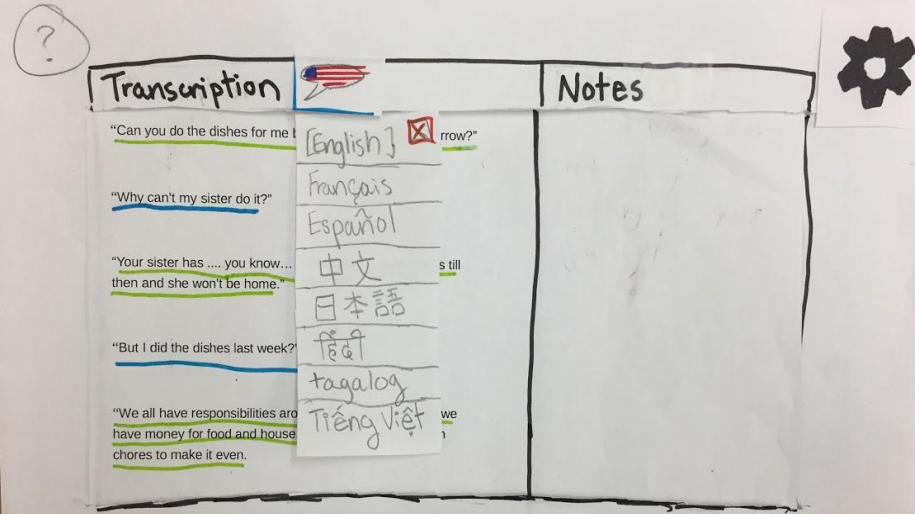 ?
Transcription
Notes
“Can you do the dishes for me
rrow?”
“Why can't my sister do it?”
“Your sister has .... you know…
s till
then and she won't be home.”
“But I did the dishes last week?”
“We all have responsibilities aro
we
have money for food and house
chores to make it even.
[English]
X
Français
Español
中文
日本語
हिंदी
tagalog
Tiếng Việt